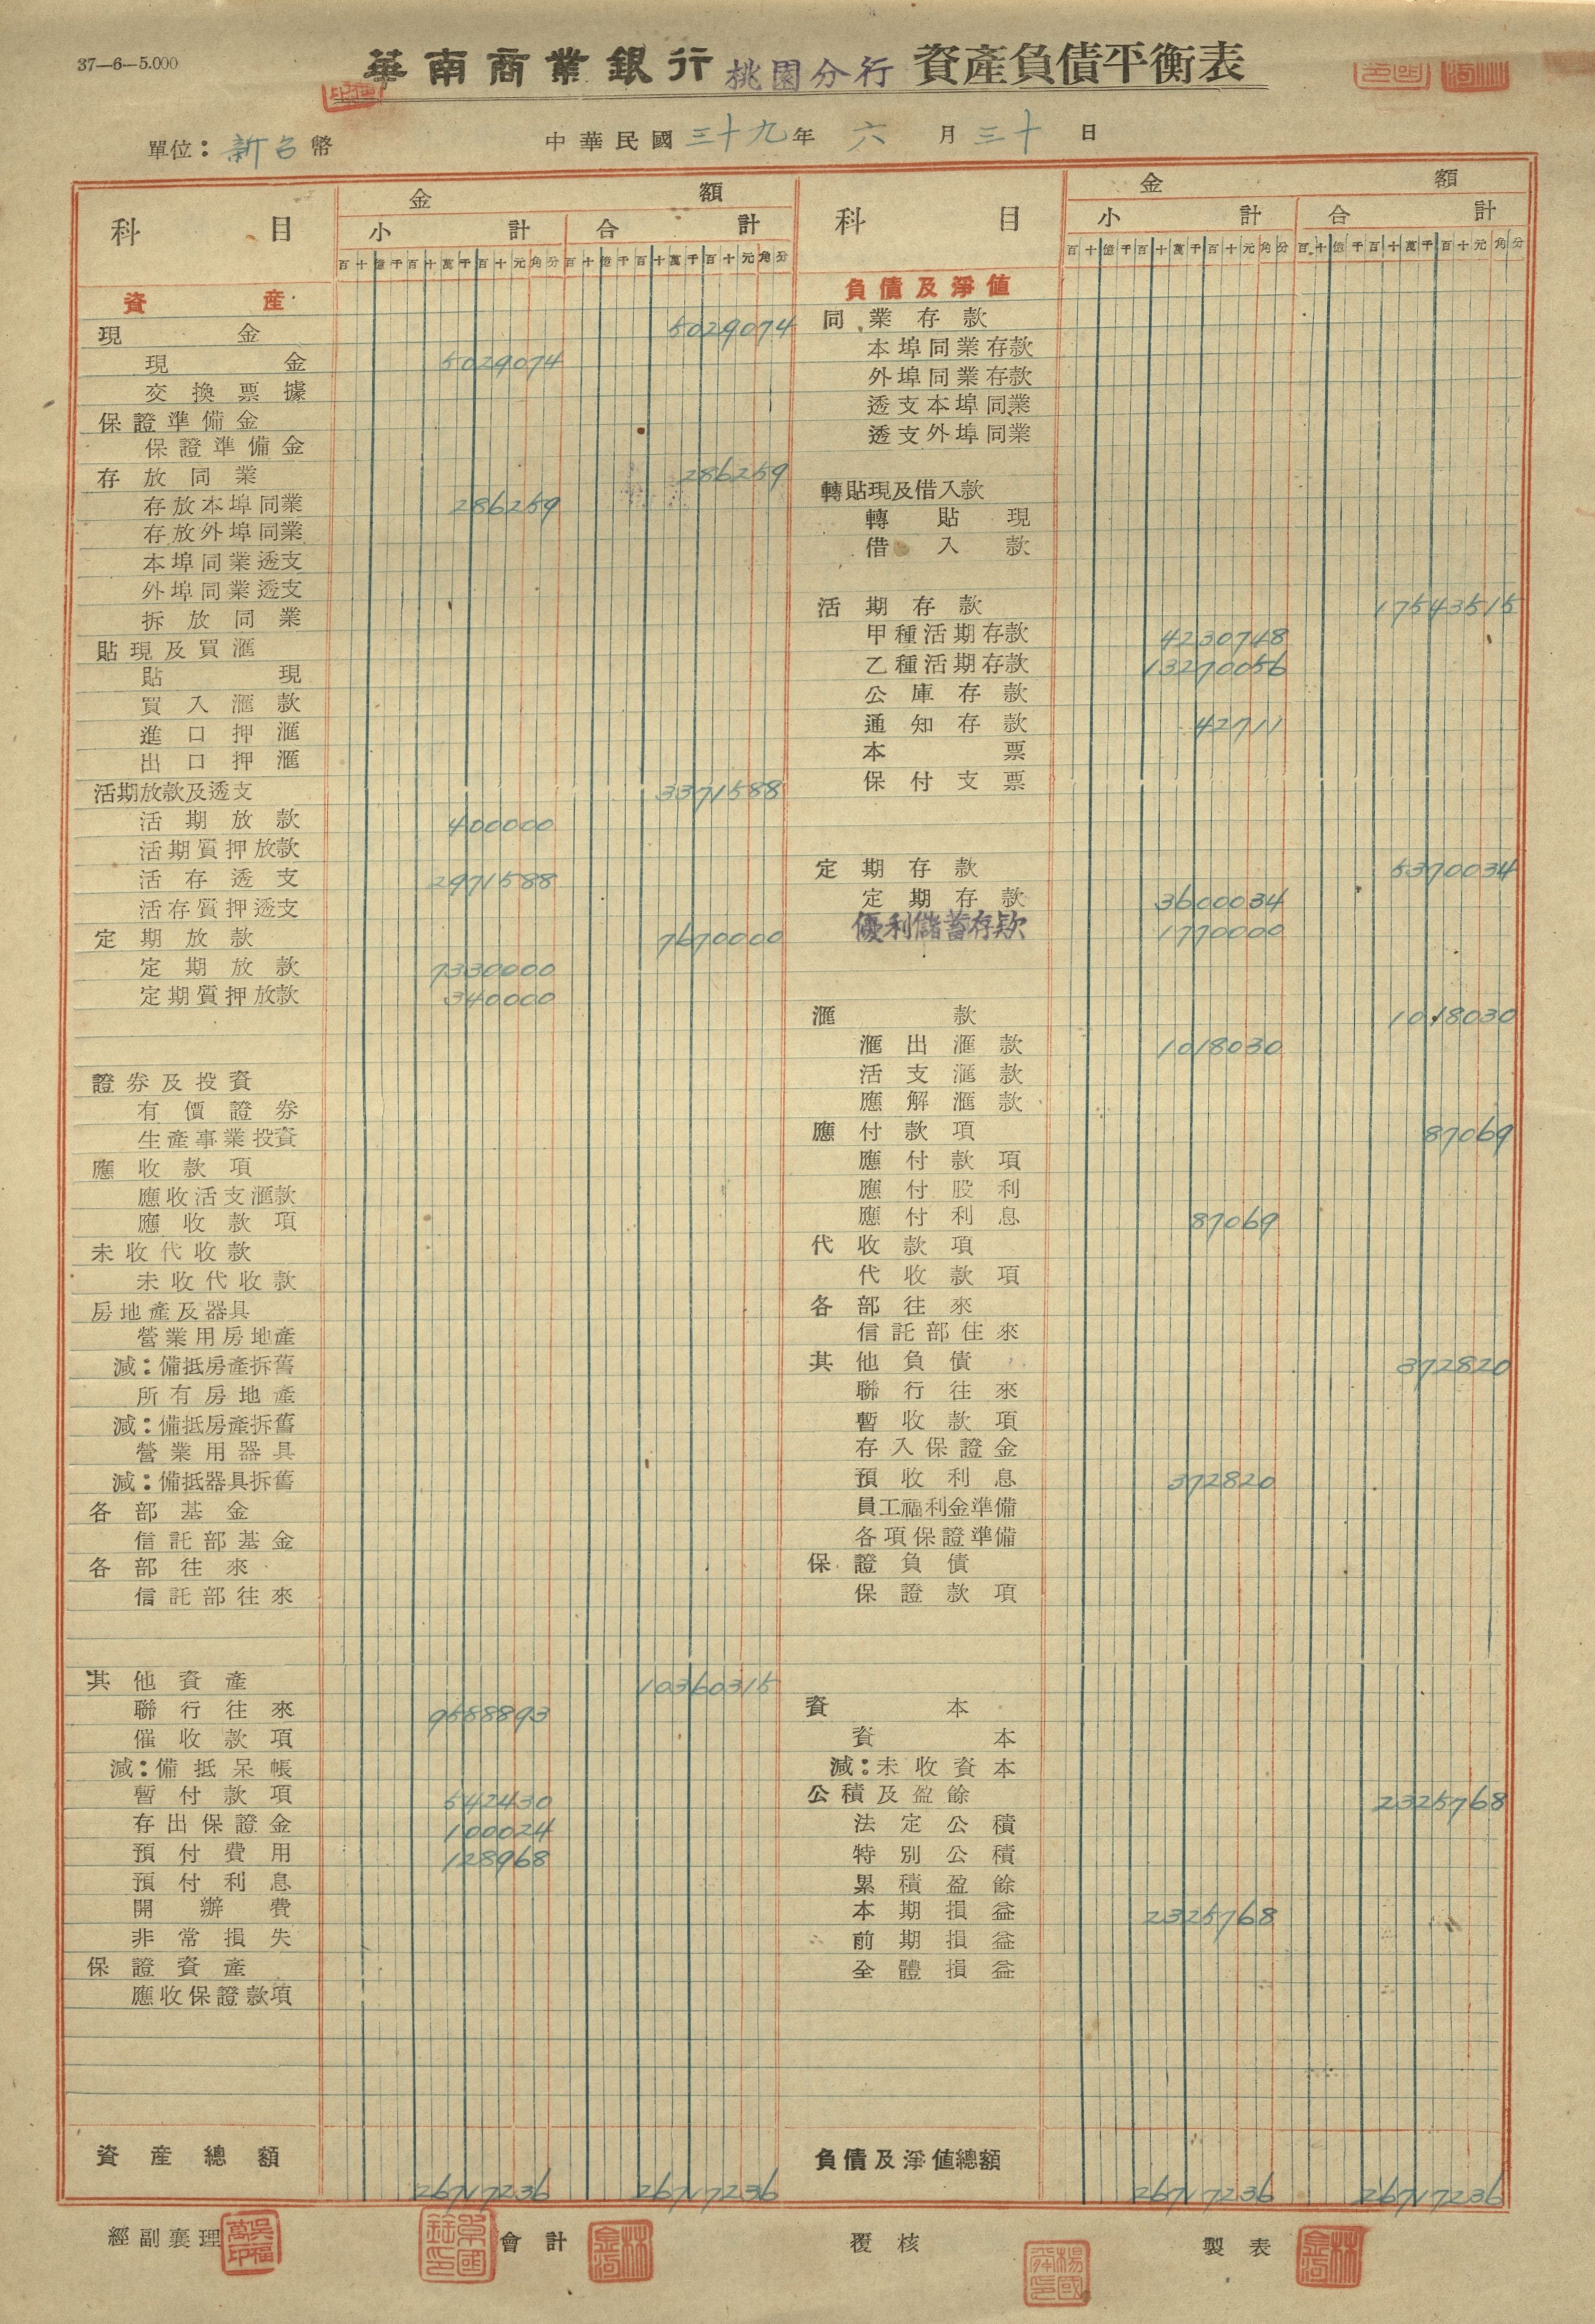 37—6—5.000
華南商業銀行 桃園分行 資產負債平衡表
單位：新台幣 中華民國三十九年六月三十日
科目 金額
小計 合計
百十億千百十萬千百十元角分 百十億千百十萬千百十元角分
資產
現金 5029074
現金 5029074
交換票據
保證準備金
保證準備金
存放同業 286259
存放本埠同業 286259
存放外埠同業
本埠同業透支
外埠同業透支
拆放同業
貼現及買滙
貼現
買入滙款
進口押滙
出口押滙
活期放款及透支 3371588
活期放款 400000
活期質押放款
活存透支 2971588
活存質押透支
定期放款 7670000
定期放款 7330000
定期質押放款 340000
證券及投資
有價證券
生產事業投資
應收款項
應收活支滙款
應收款項
未收代收款
未收代收款
房地產及器具
營業用房地產
減：備抵房產拆舊
所有房地產
減：備抵房產拆舊
營業用器具
減：備抵器具拆舊
各部基金
信託部基金
各部往來
信託部往來
其他資產 10360315
聯行往來 9588893
催收款項
減：備抵呆帳
暫付款項 542430
存出保證金 100024
預付費用 128968
預付利息
開辦費
非常損失
保證資產
應收保證款項
資產總額 26717236 26717236
科目 金額
小計 合計
百十億千百十萬千百十元角分 百十億千百十萬千百十元角分
負債及淨值
同業存款
本埠同業存款
外埠同業存款
透支本埠同業
透支外埠同業
轉貼現及借入款
轉貼現
借入款
活期存款 17543515
甲種活期存款 4230748
乙種活期存款 13270056
公庫存款
通知存款 42711
本票
保付支票
定期存款 5370034
定期存款 3600034
優利儲蓄存款 1770000
滙款 1018030
滙出滙款 1018030
活支滙款
應解滙款
應付款項 87069
應付款項
應付股利
應付利息 87069
代收款項
代收款項
各部往來
信託部往來
其他負債 372820
聯行往來
暫收款項
存入保證金
預收利息 372820
員工福利金準備
各項保證準備
保證負債
保證款項
資本
資本
減：未收資本
公積及盈餘 2325768
法定公積
特別公積
累積盈餘
本期損益 2325768
前期損益
全體損益
負債及淨值總額 26717236 26717236
經副襄理 會計 覆核 製表